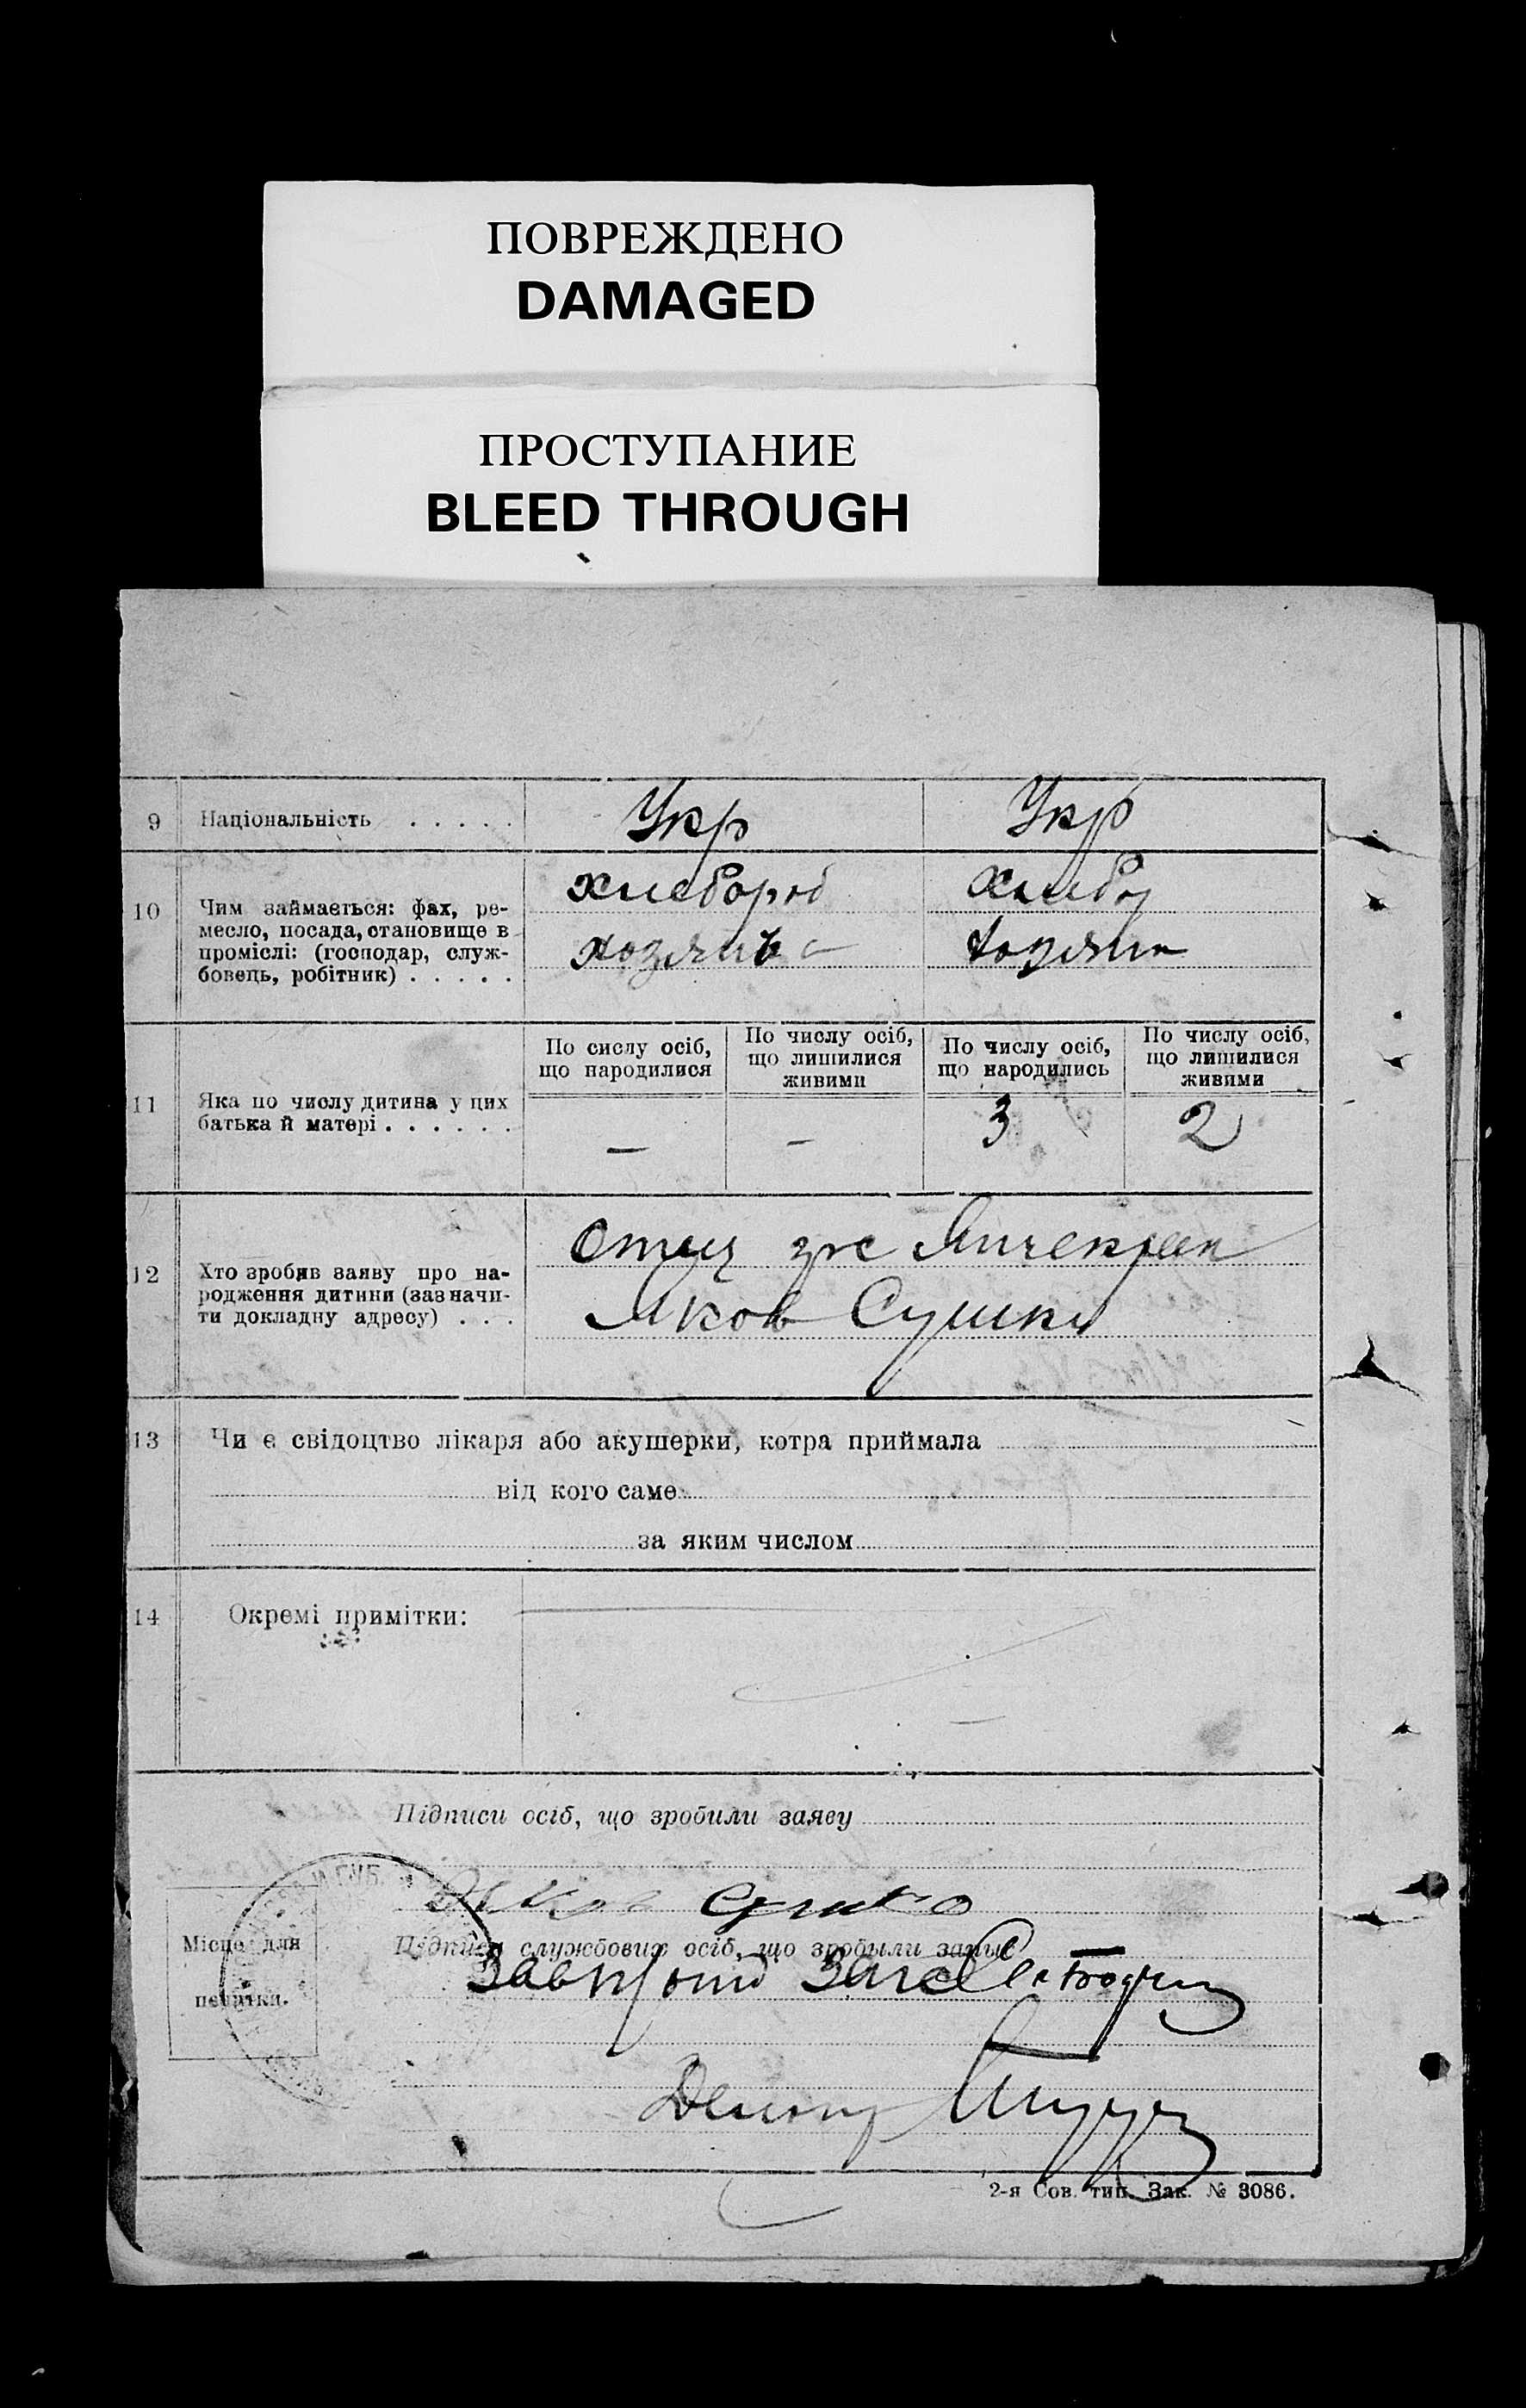 ПОВРЕЖДЕНО
DAMAGED
ПРОСТУПАНИЕ
BLEED THROUGH
9 Національність . . . . . Укр Укр
10 Чим займається: фах, ре-
месло, посада, становище в
проміслі: (господар, служ-
бовець, робітник) . . . . .
хлебороб
11 Яка по числу дитина у цих
батька й матері . . . . . .
По сислу осіб,
що народилися
По числу осіб,
що лишилися
живими
По числу осіб,
що народились
По числу осіб,
що лишилися
живими
— — 3 2
12 Хто зробив заяву про на-
родження дитини (зазначи-
ти докладну адресу) . . .
Отец
Яков Сушко
13 Чи є свідоцтво лікаря або акушерки, котра приймала
від кого саме
за яким числом
14 Окремі примітки:
Підписи осіб, що зробили заяву
Сушко
Підписи службових осіб, що зробыли запис
Місце для
печатки.
2-я Сов. тип. Зак. № 3086.